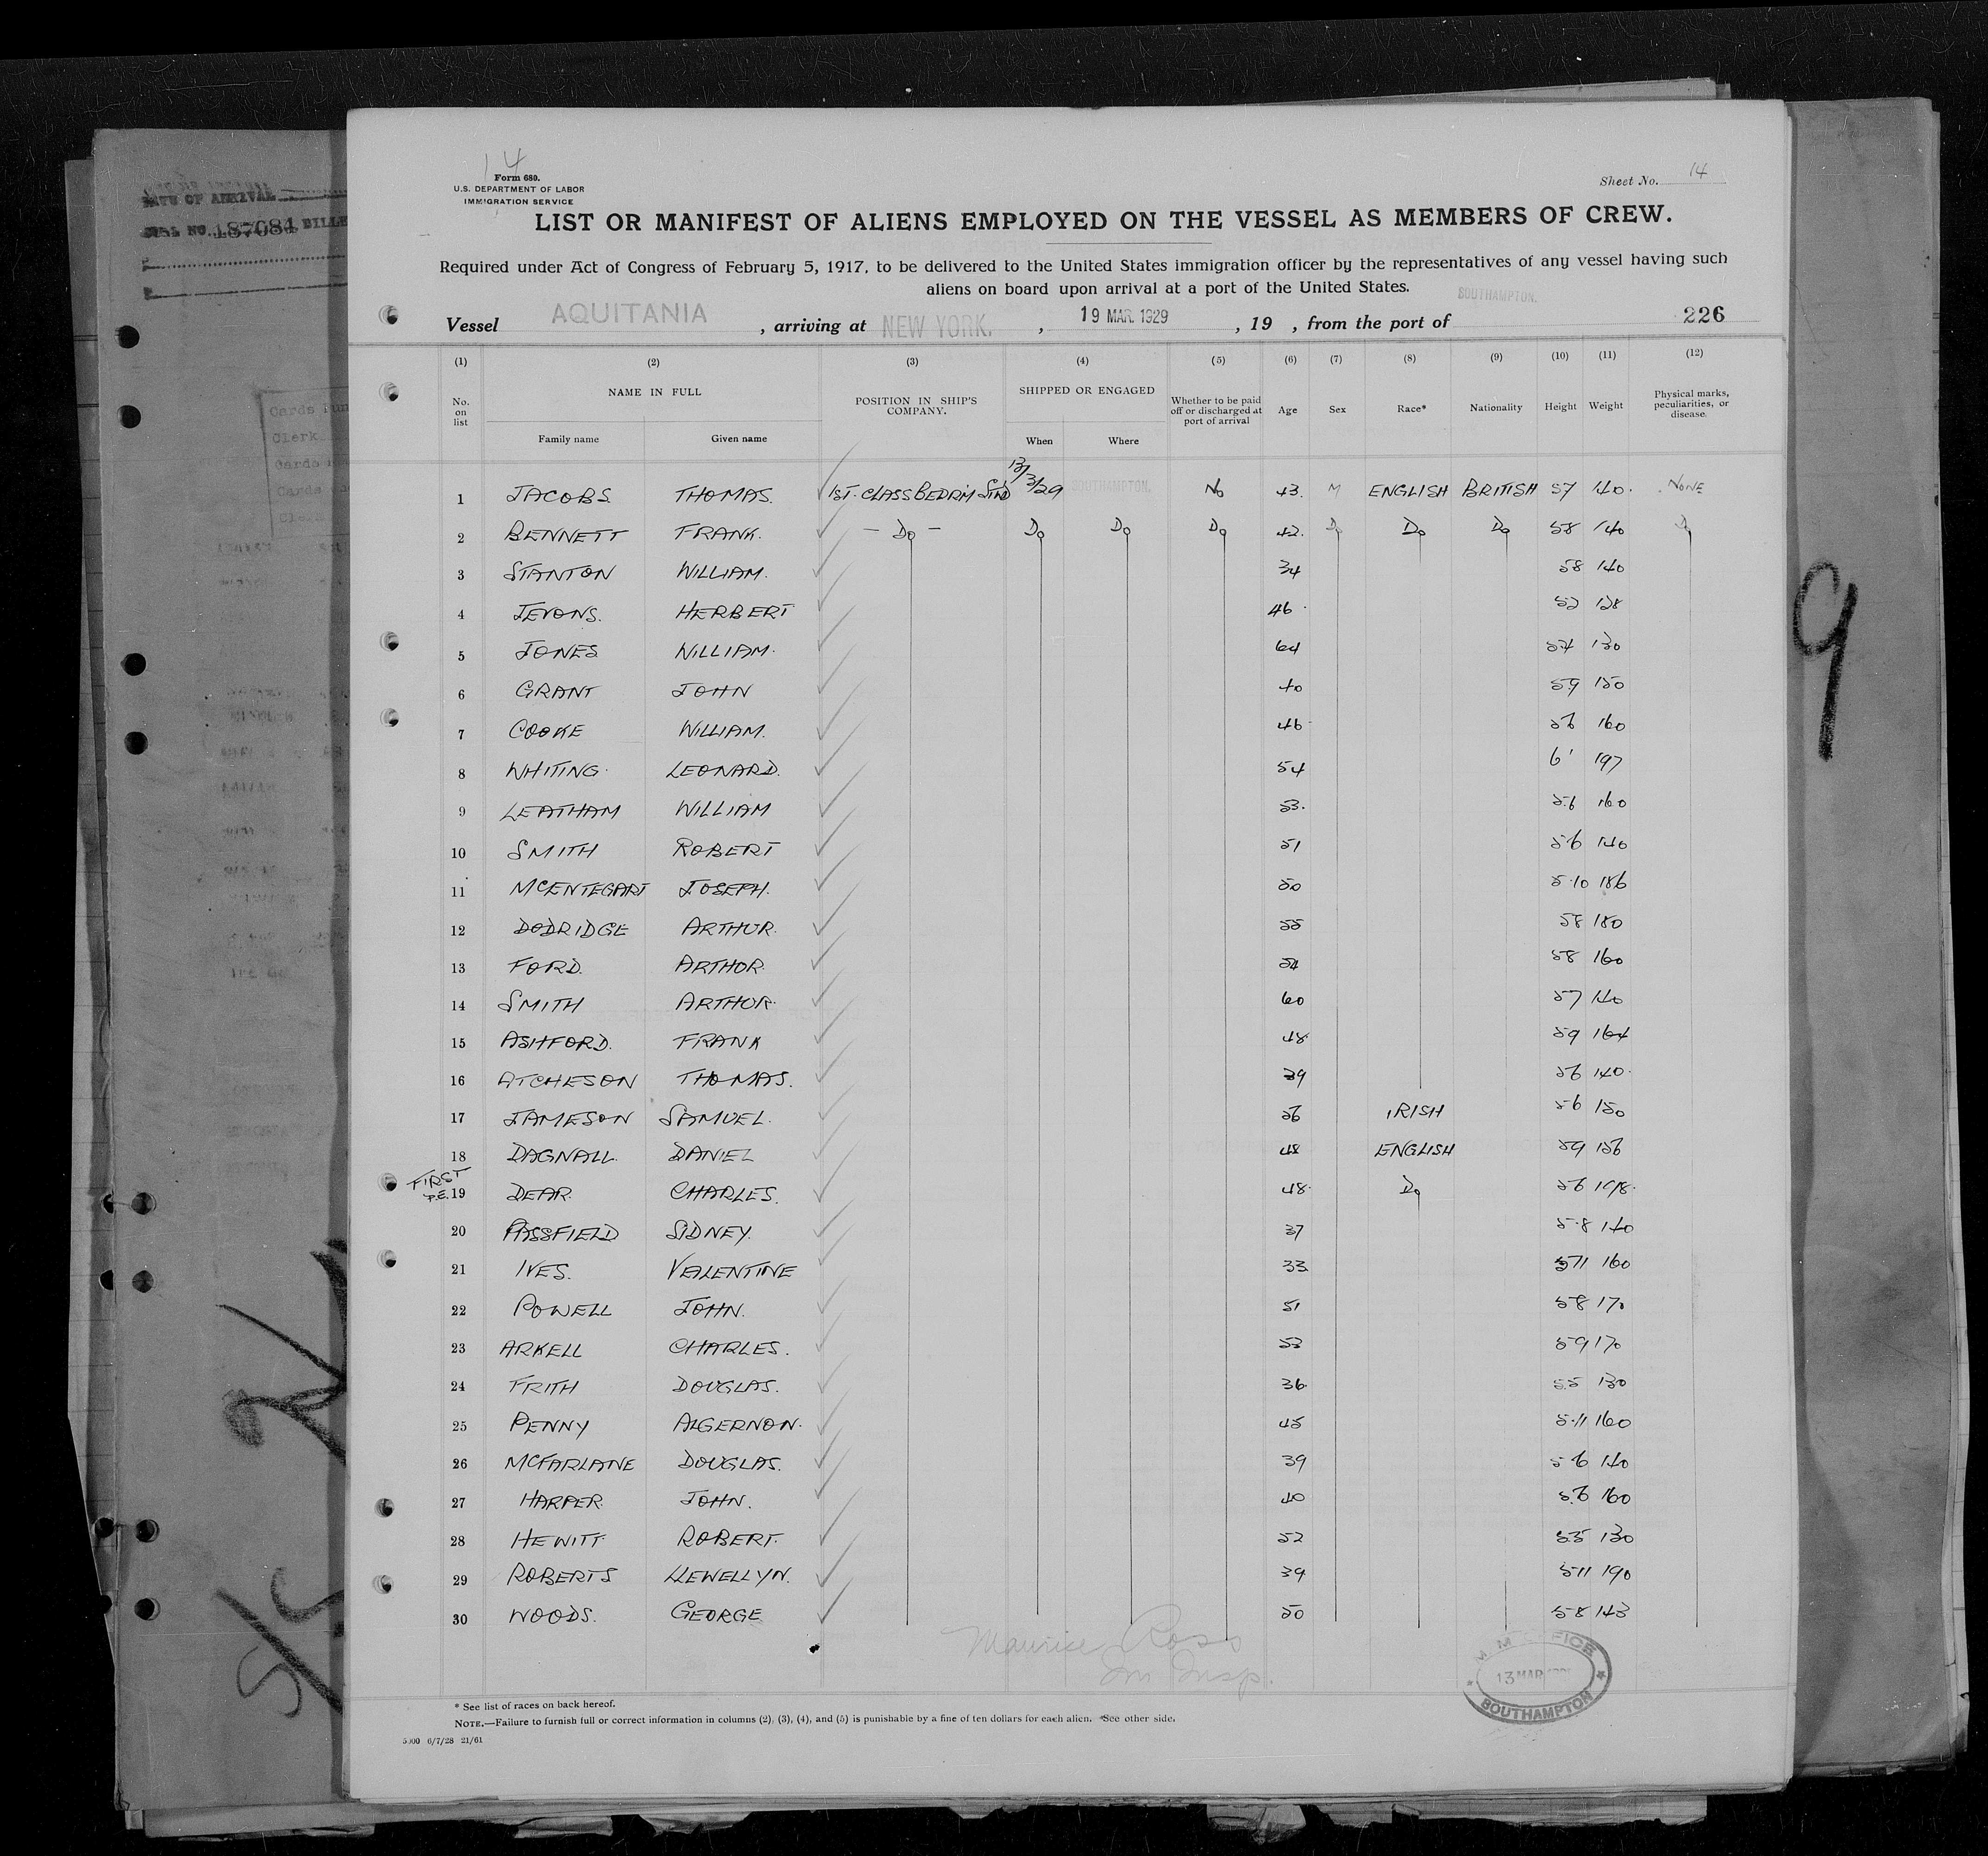 14
Form 680.
U.S. DEPARTMENT OF LABOR
IMMIGRATION SERVICE
Sheet No. 14
LIST OR MANIFEST OF ALIENS EMPLOYED ON THE VESSEL AS MEMBERS OF CREW.
Required under Act of Congress of February 5, 1917, to be delivered to the United States immigration officer by the representatives of any vessel having such
aliens on board upon arrival at a port of the United States.
Vessel AQUITANIA, arriving at NEW YORK., 19 MAR. 1929, 19 , from the port of SOUTHAMPTON. 226
(1) (2) (3) (4) (5) (6) (7) (8) (9) (10) (11) (12)
No. on list NAME IN FULL Family name Given name POSITION IN SHIP'S COMPANY. SHIPPED OR ENGAGED When Where Whether to be paid off or discharged at port of arrival Age Sex Race* Nationality Height Weight Physical marks, peculiarities, or disease.
1 JACOBS THOMAS. 1ST. CLASS BEDRM STD 13/3/29 SOUTHAMPTON. No 43. M ENGLISH BRITISH 57 140. NONE
2 BENNETT FRANK. - Do - Do Do Do 42. Do Do Do 58 140 Do
3 STANTON WILLIAM. 34 58 140
4 JEVONS. HERBERT 46 52 128
5 JONES WILLIAM. 64 54 130
6 GRANT JOHN 40 59 150
7 COOKE WILLIAM. 46 56 160
8 WHITING. LEONARD. 54 6' 197
9 LEATHAM WILLIAM 53. 5.6 160
10 SMITH ROBERT 51 5.6 140
11 MCENTEGART JOSEPH. 50 5.10 186
12 DODRIDGE ARTHUR. 55 58 180
13 FORD. ARTHOR. 54 58 160
14 SMITH ARTHUR. 60 57 140
15 ASHFORD. FRANK 48 59 164
16 ATCHESON THOMAS. 39 56 140.
17 JAMESON SAMUEL. 56 IRISH 56 150
18 DAGNALL. DANIEL 48 ENGLISH 59 156
FIRST P.E. 19 DEAR. CHARLES. 48. Do 56 198.
20 PASSFIELD SIDNEY. 37 5.8 140
21 IVES. VALENTINE 33 511 160
22 POWELL JOHN. 51 58 170
23 ARKELL CHARLES. 53 59 170
24 FRITH DOUGLAS. 36 5.5 130
25 PENNY ALGERNON. 45 5.11 160
26 MCFARLANE DOUGLAS. 39 5 6 140
27 HARPER JOHN. 40 5.6 160
28 HEWITT ROBERT. 52 5.5 130
29 ROBERTS LLEWELLYN. 39 511 190
30 WOODS. GEORGE 50 58 143
Maurice Ross
Im Insp.
OFFICE
13 MAR
SOUTHAMPTON
* See list of races on back hereof.
NOTE.—Failure to furnish full or correct information in columns (2), (3), (4), and (5) is punishable by a fine of ten dollars for each alien. *See other side.
5000 6/7/28 21/61
DATE OF ARRIVAL
NO. 187084
Cards
Clerk
Cards
Cards
9